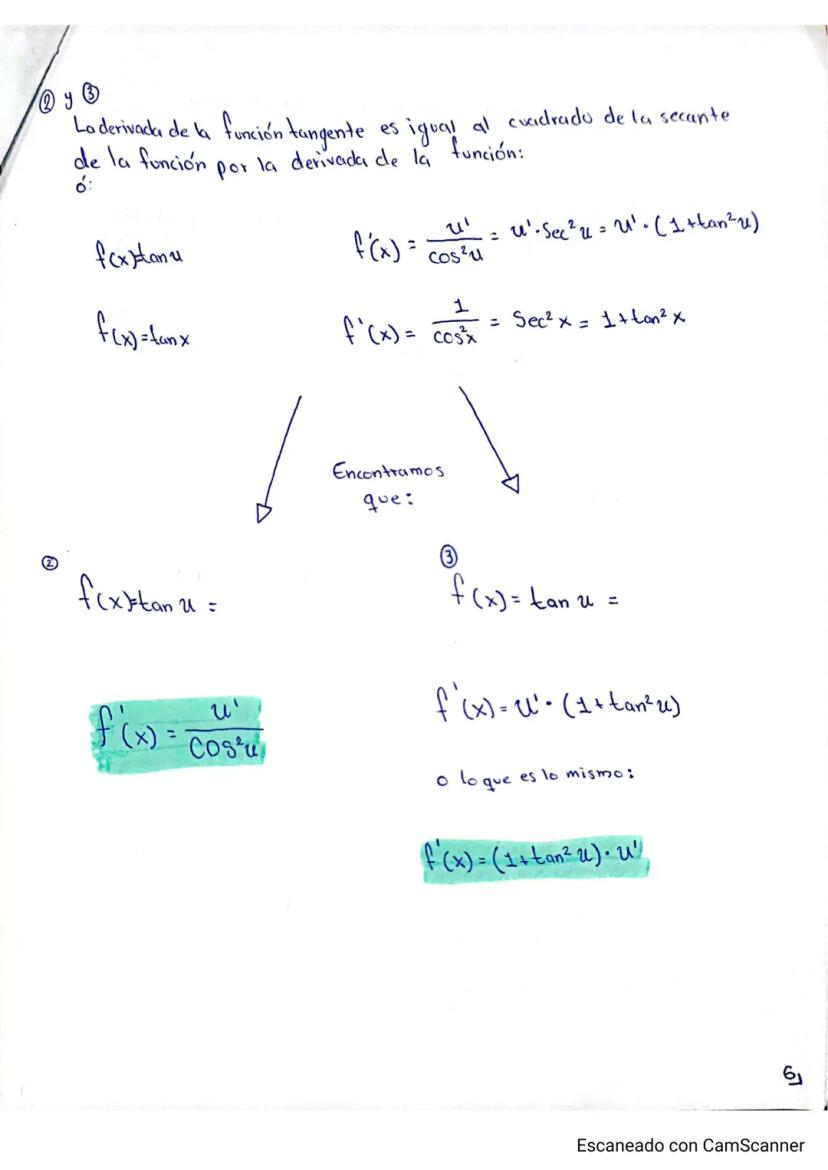 ② y ③
La derivada de la función tangente es igual al cuadrado de la secante
de la función por la derivada de la función:
ó:
f(x)=tan u    f'(x) = u'/cos²u = u'·Sec²u = u'·(1+tan²u)
f(x)=tan x    f'(x) = 1/cos²x = Sec²x = 1+tan²x
Encontramos
que:
②
f(x)=tan u =
f'(x) = u'/cos²u
③
f(x) = tan u =
f'(x) = u'·(1+tan²u)
o lo que es lo mismo:
f'(x) = (1+tan²u)·u'
6
Escaneado con CamScanner